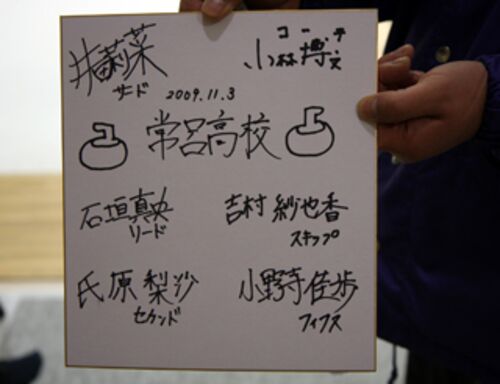 莉菜
サード
コーチ
小林博文
2009.11.3
常呂高校
石垣真央
リード
吉村紗也香
スキップ
氏原梨沙
セカンド
小野寺佳歩
フィフス